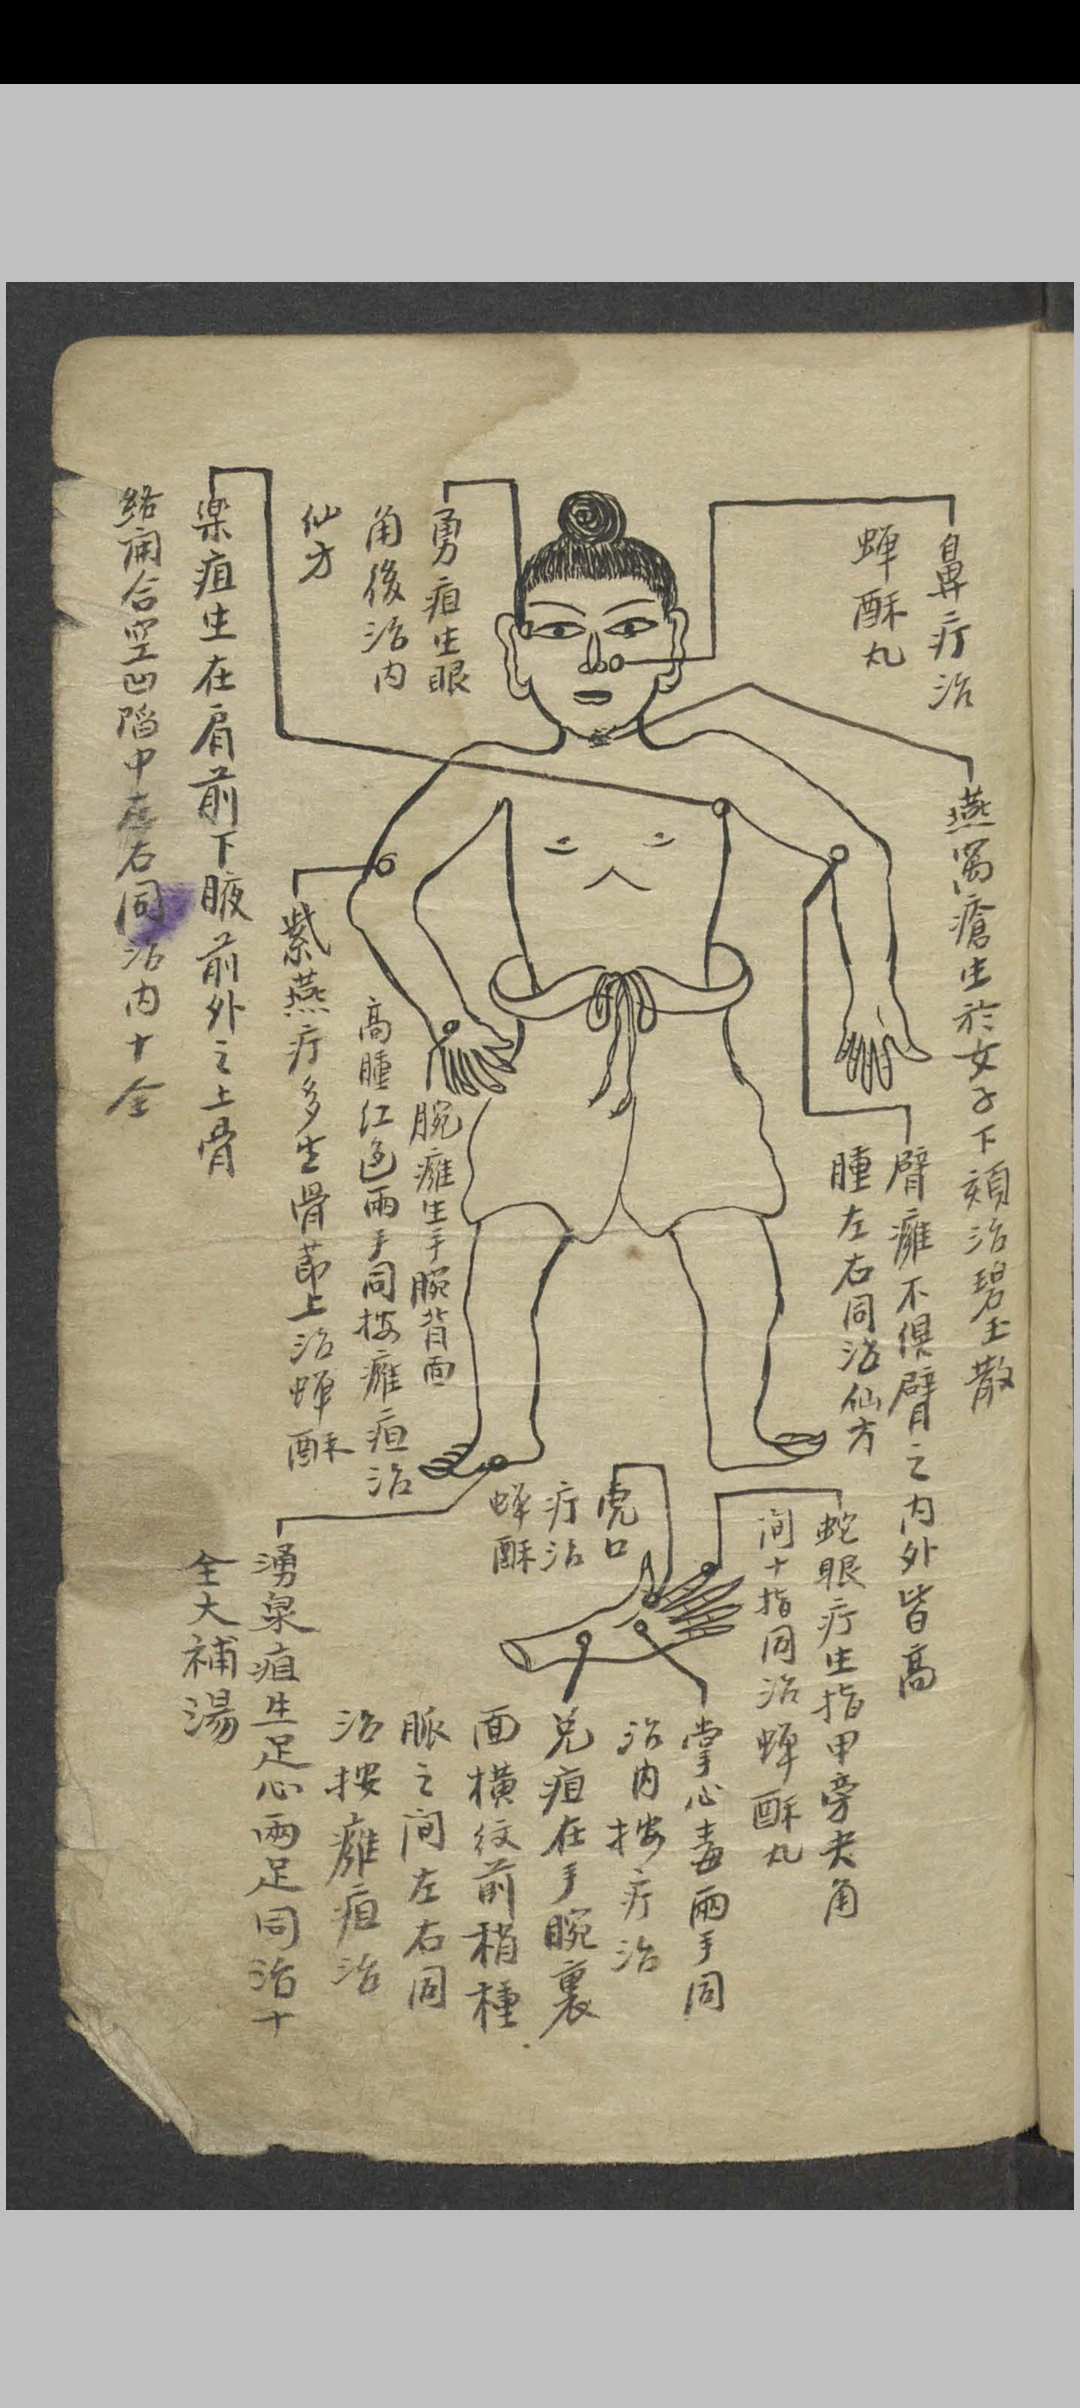 鼻疔治
蟬酥丸
燕窩瘡生於女子下頦治碧玉散
臂癰不俱臂之内外皆高
腫左右同治仙方
勇疽生眼
角後治内
仙方
樂疽生在肩前下腋前外之上骨
絡開合空凹陷中左右同治内十全
紫燕疔多生骨節上治蟬酥
腕癰生手腕背面
高腫紅色兩手同按癰疽治
虎口
疔治
蟬酥
蛇眼疔生指甲旁夾角
间十指同治蟬酥丸
掌心毒兩手同
治内按疔治
兑疽在手腕裏
面橫纹前稍種
脈之间左右同
治按癰疽治
湧泉疽生足心兩足同治十
全大補湯